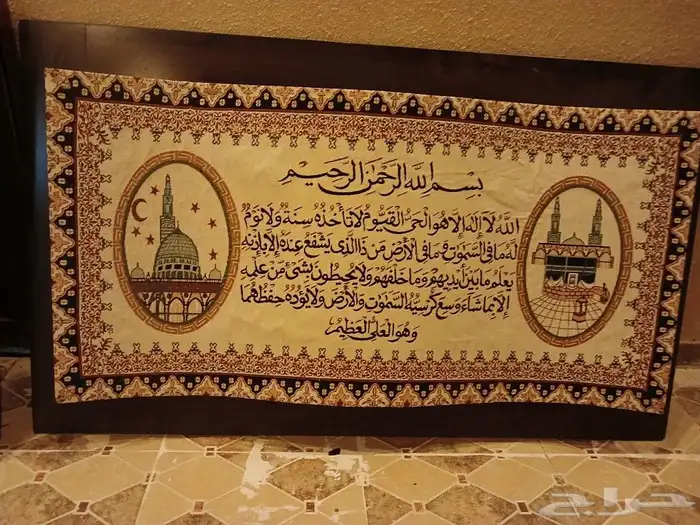 بِسْمِ اللهِ الرَّحْمٰنِ الرَّحِيمِ
اَللهُ لَا إِلٰهَ إِلَّا هُوَ الْحَيُّ الْقَيُّومُ لَا تَأْخُذُهُ سِنَةٌ وَلَا نَوْمٌ
لَهُ مَا فِي السَّمٰوٰتِ وَمَا فِي الْأَرْضِ مَنْ ذَا الَّذِي يَشْفَعُ عِنْدَهُ إِلَّا بِإِذْنِهِ
يَعْلَمُ مَا بَيْنَ أَيْدِيهِمْ وَمَا خَلْفَهُمْ وَلَا يُحِيطُونَ بِشَيْءٍ مِنْ عِلْمِهِ
إِلَّا بِمَا شَاءَ وَسِعَ كُرْسِيُّهُ السَّمٰوٰتِ وَالْأَرْضَ وَلَا يَؤُدُهُ حِفْظُهُمَا
وَهُوَ الْعَلِيُّ الْعَظِيمُ
حراج